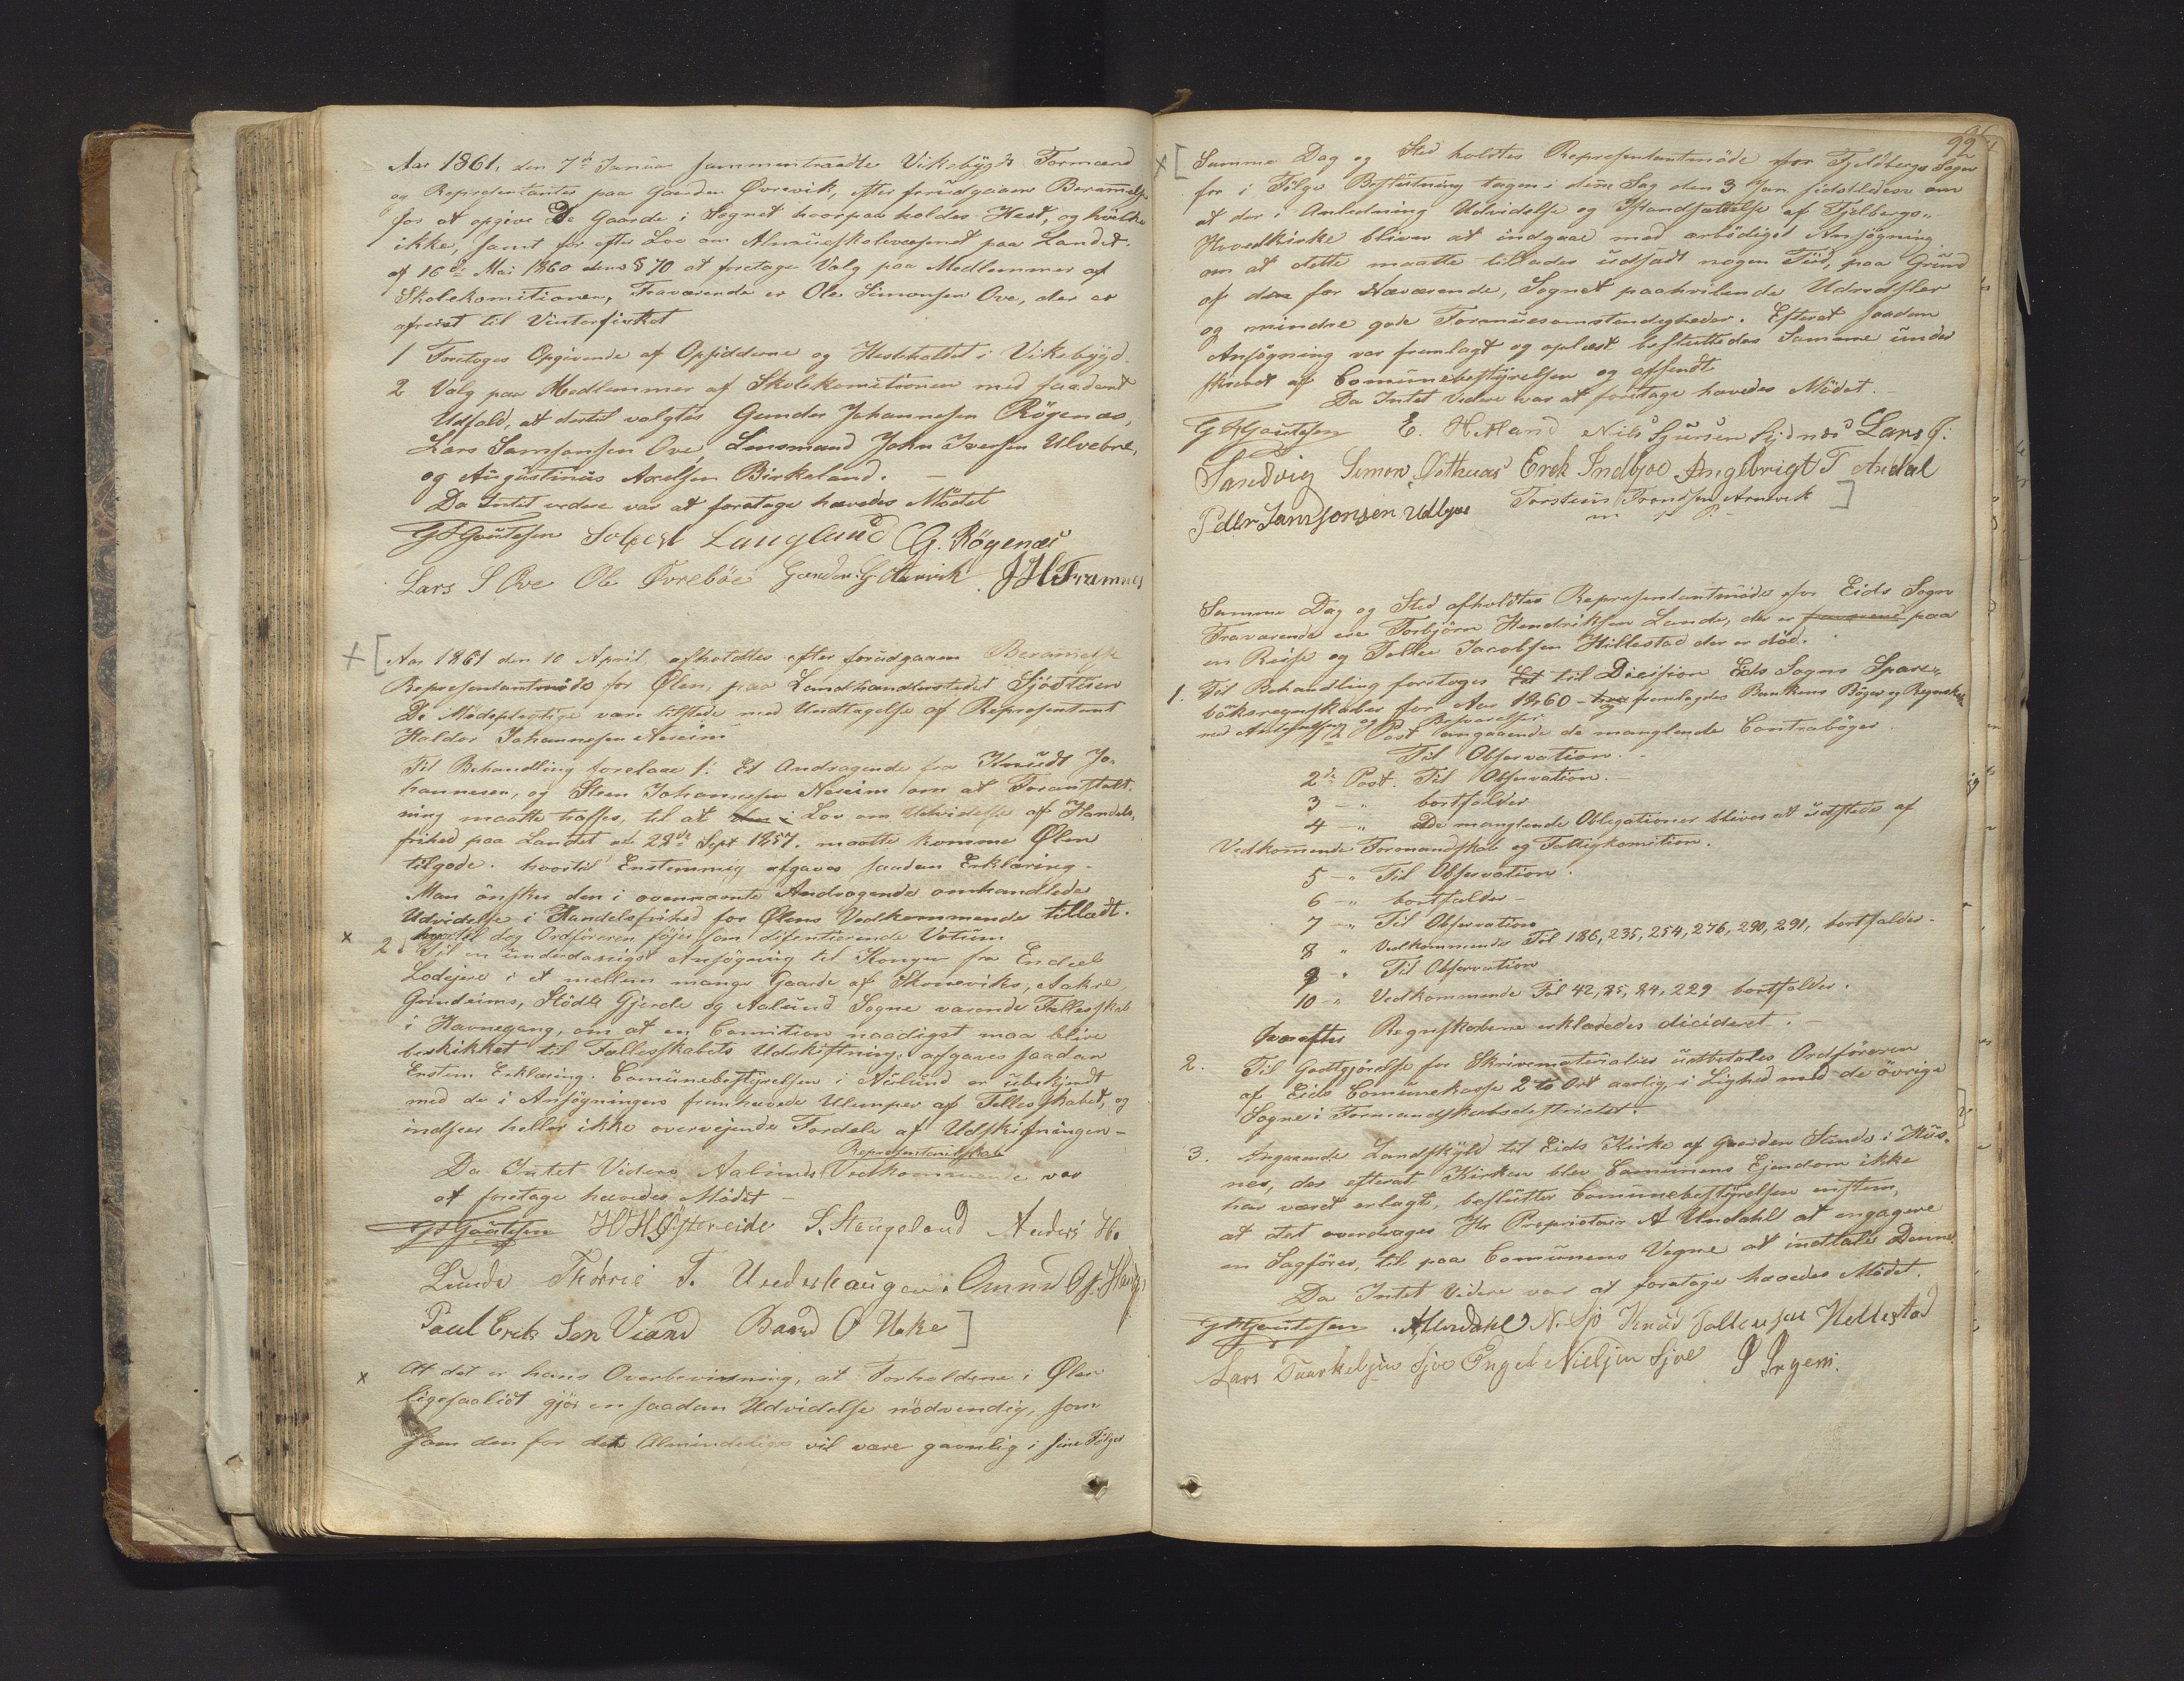 Aar 1861, den 7de Januar sammentraadte Viksbygds Formænd
og Repræsentanter paa Gaarden Øvrevik, efter forudgaaen Berammelse
for at opgive De Gaarde i Sognet hvorpaa holdes Hest, og hvilke
ikke, samt for efter Lov om Almueskolevæsenet paa Landet
af 16de Mai 1860 dens § 70 at foretage Valg paa Medlemmer af
Skolekomitionen, Fraværende er Ole Simonsen Ove, der er
afreist til Vinterfisket
1 Foretoges Opgivende af Opsidderne og Hesteholdet i Viksbygd.
2 Valg paa Medlemmer af Skolekomitionen med saadant
Udfald, at dertil valgtes Gunder Johannesen Røgenæs,
Lars Samsonsen Ove, Lensmand John Iversen Ulvebne,
og Augustinus Axelsen Birkeland. —
Da Intet videre var at foretage hævedes Mødet
GSGoutesen Langland G. Røgenæs
Lars S Ove Ole Øvrebøe Gunder G JHFramnes
Aar 1861 den 10 April, afholdtes efter forudgaaen Berammelse
Repræsentantmøde for Ølen, paa Landhandlerstedet Sjøstøen
De Mødepligtige vare tilstede med Undtagelse af Repræsentant
Haldor Johannesen Aeseim
Til Behandling forelaae 1. Et Andragende fra Knudt Jo-
hannesen, og Steen Johannesen Neseim om at Foranstalt-
ning maatte træffes, til at Lov om Udvidelse af Handels-
frihed paa Landet af 22de Sept 1857. maatte komme Ølen
tilgode. hvortil Enstemmig afgaves saadan Erklæring.
Man ønsker den i ovennævnte Andragende omhandlede
Udvidelse i Handelsfrihed for Ølens Vedkommende tilladt.
x hvortil dog Ordføreren føjer som disentierende Votum
2. Til en underdanigst Ansøgning til Kongen fra Endeel
Lodejere i et mellem mange Gaarde af Skoneviks, Aakre,
Grindeims, Stødle Gjerde og Aalund Sogne værende Fellesskab
i Havnegang, om at en Comition naadigst maa blive
beskikket til Fællesskabets Udskiftning, afgaves saadan
Enstem Erklæring. Comunebestyrelsen i Aalund er ubekjendt
med de i Ansøgningen fremhævede Ulemper af Fellesskabet, og
indseer heller ikke overvejende Fordele af Udskiftningen —
Repræsentantskab
Da Intet Videre Aalunds Vedkommende var
at foretage hævedes Mødet —
GSGoutesen HHØstereide S. Stangeland Anders H.
Lunde Thørris T. Underhaugen
Paul Eriksen Viand Baard O Uke
x At det er hans Overbevisning, at Forholdene i Ølen
ligesaalidt gjør en saadan Udvidelse nødvendig, som
som den for det Almindelige vil være gavnlig i sine Følger
99
Samme Dag og Sted holdtes Repræsentantmøde for Fjelbergs Sogn
for i Følge Beslutning tagen i denne Sag den 3 Jan. sidstleden om
at der i Anledning Udvidelse og Istandsættelse af Fjelbergs-
Hovedkirke bliver at indgaae med ærbødigst Ansøgning
om at dette maatte tillades udsadt nogen Tid, paa Grund
af den for Nærværende, Sognet paahvilende Udredsler
og mindre gode Formuesomstendigheder. Efterat saadan
Ansøgning var fremlagt og oplæst besluttedes Samme under
skrevet af Comunebestyrelsen og afsendt
Da Intet Videre var at foretage hævedes Mødet.
GSGoutesen E. Hæland Nils Sjursen Lars J.
Sandvig Simon Østhuus Erek Indbjoe Angelbrigt T Ardal
Peder Samsonsen Udbjoe Torstein Trondsen Arnevik
m p P.
Samme Dag og Sted afholdtes Repræsentantmøde for Eids Sogn
Fraværende ere Torbjørn Hendriksen Lande, der er paa
en Reise og Tollev Jacobsen Hillestad der er død.
1. Til Behandling foretoges til Dicision Eids Sogns Spare-
böksregnskaber for Aar 1860 - fremlagdes Bankens Bøger og Regnskab
med Antegnelser og Besvarelser
1ste Post angaaende de manglende Contrabøger
Til Observation.
2de Post. Til Observation. —
3 — „ bortfalder
4 — „ De manglende Obligationer bliver at udstede af
Vedkommende Formandskab og Fattigkomition.
5 — „ Til Observation.
6 — „ bortfalder —
7 — „ Til Observation
8 „ Vedkommende Fol 186, 235, 254, 276, 290, 291, bortfalder —
9 „ Til Observation
10 — „ Vedkommende Fol 42, 85, 84, 229 bortfalder.
hvorefter Regnskaberne erklæredes dicideret. —
2. Til Godtgjørelse for Skrivematerialier udbetales Ordføreren
af Eids Comunekasse 2 to Ort aarlig, i Lighed med de øvrige
Sogne i Formandskabsdestrictet.
3. Angaaende Landskyld til Eids Kirke af Gaarden Sunde i Hus-
nes, der efterat Kirken blev Comunens Ejendom ikke
har været erlagt, beslutter Comunebestyrelsen enstem,
at det overdrages Hr Proprietair A Undahl at engagere
en Sagfører, til paa Comunens Vegne at indtale Denne.
Da Intet Videre var at foretage hævedes Mødet.
GSGoutesen AUndahl N. Sjo Knud Tollevsen Hellestad
Lars Sjoe Engel Nielsen Sjoe